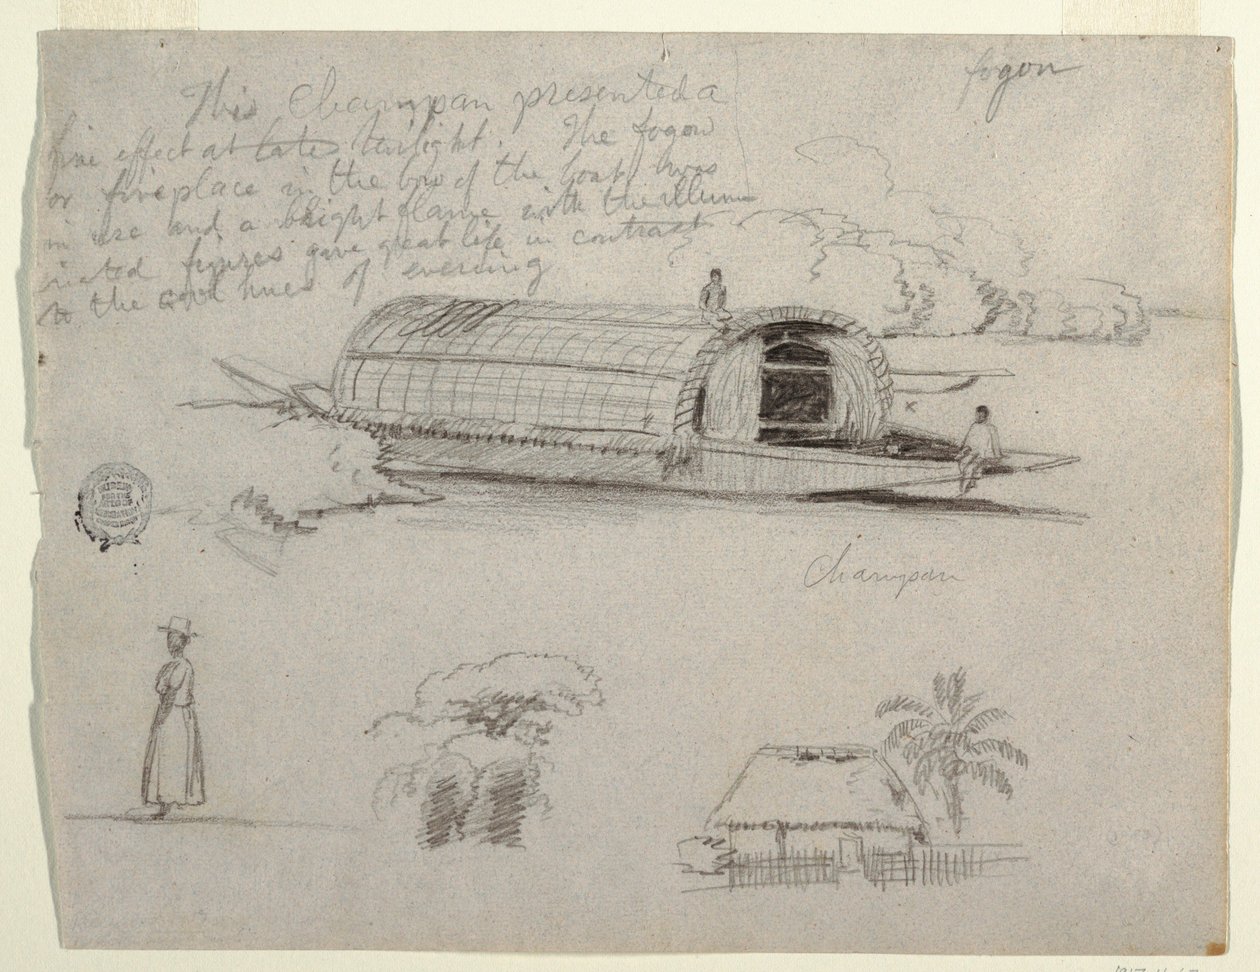 This Champan presented a
fine effect at late twilight. The fogon
or fireplace in the bow of the boat was
in use and a bright flame with the illumi
nated figures gave great life in contrast
to the cool hues of evening
fogon
Champan
FOR THE